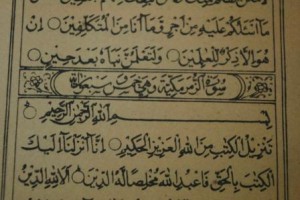 مَآ اَسْئَلُكُمْ عَلَيْهِ مِنْ اَجْرٍ وَّمَآ اَنَا مِنَ الْمُتَكَلِّفِيْنَ ○ اِنْ
هُوَ اِلَّا ذِكْرٌ لِّلْعٰلَمِيْنَ ○ وَلَتَعْلَمُنَّ نَبَاَهٗ بَعْدَ حِيْنٍ ○
سورة الزمر مكية وهي خمس
بِسْمِ اللّٰهِ الرَّحْمٰنِ الرَّحِيْمِ ○
تَنْزِيْلُ الْكِتٰبِ مِنَ اللّٰهِ الْعَزِيْزِ الْحَكِيْمِ ○ اِنَّآ اَنْزَلْنَآ اِلَيْكَ
الْكِتٰبَ بِالْحَقِّ فَاعْبُدِ اللّٰهَ مُخْلِصًا لَّهُ الدِّيْنَ ○ اَلَا لِلّٰهِ الدِّيْنُ